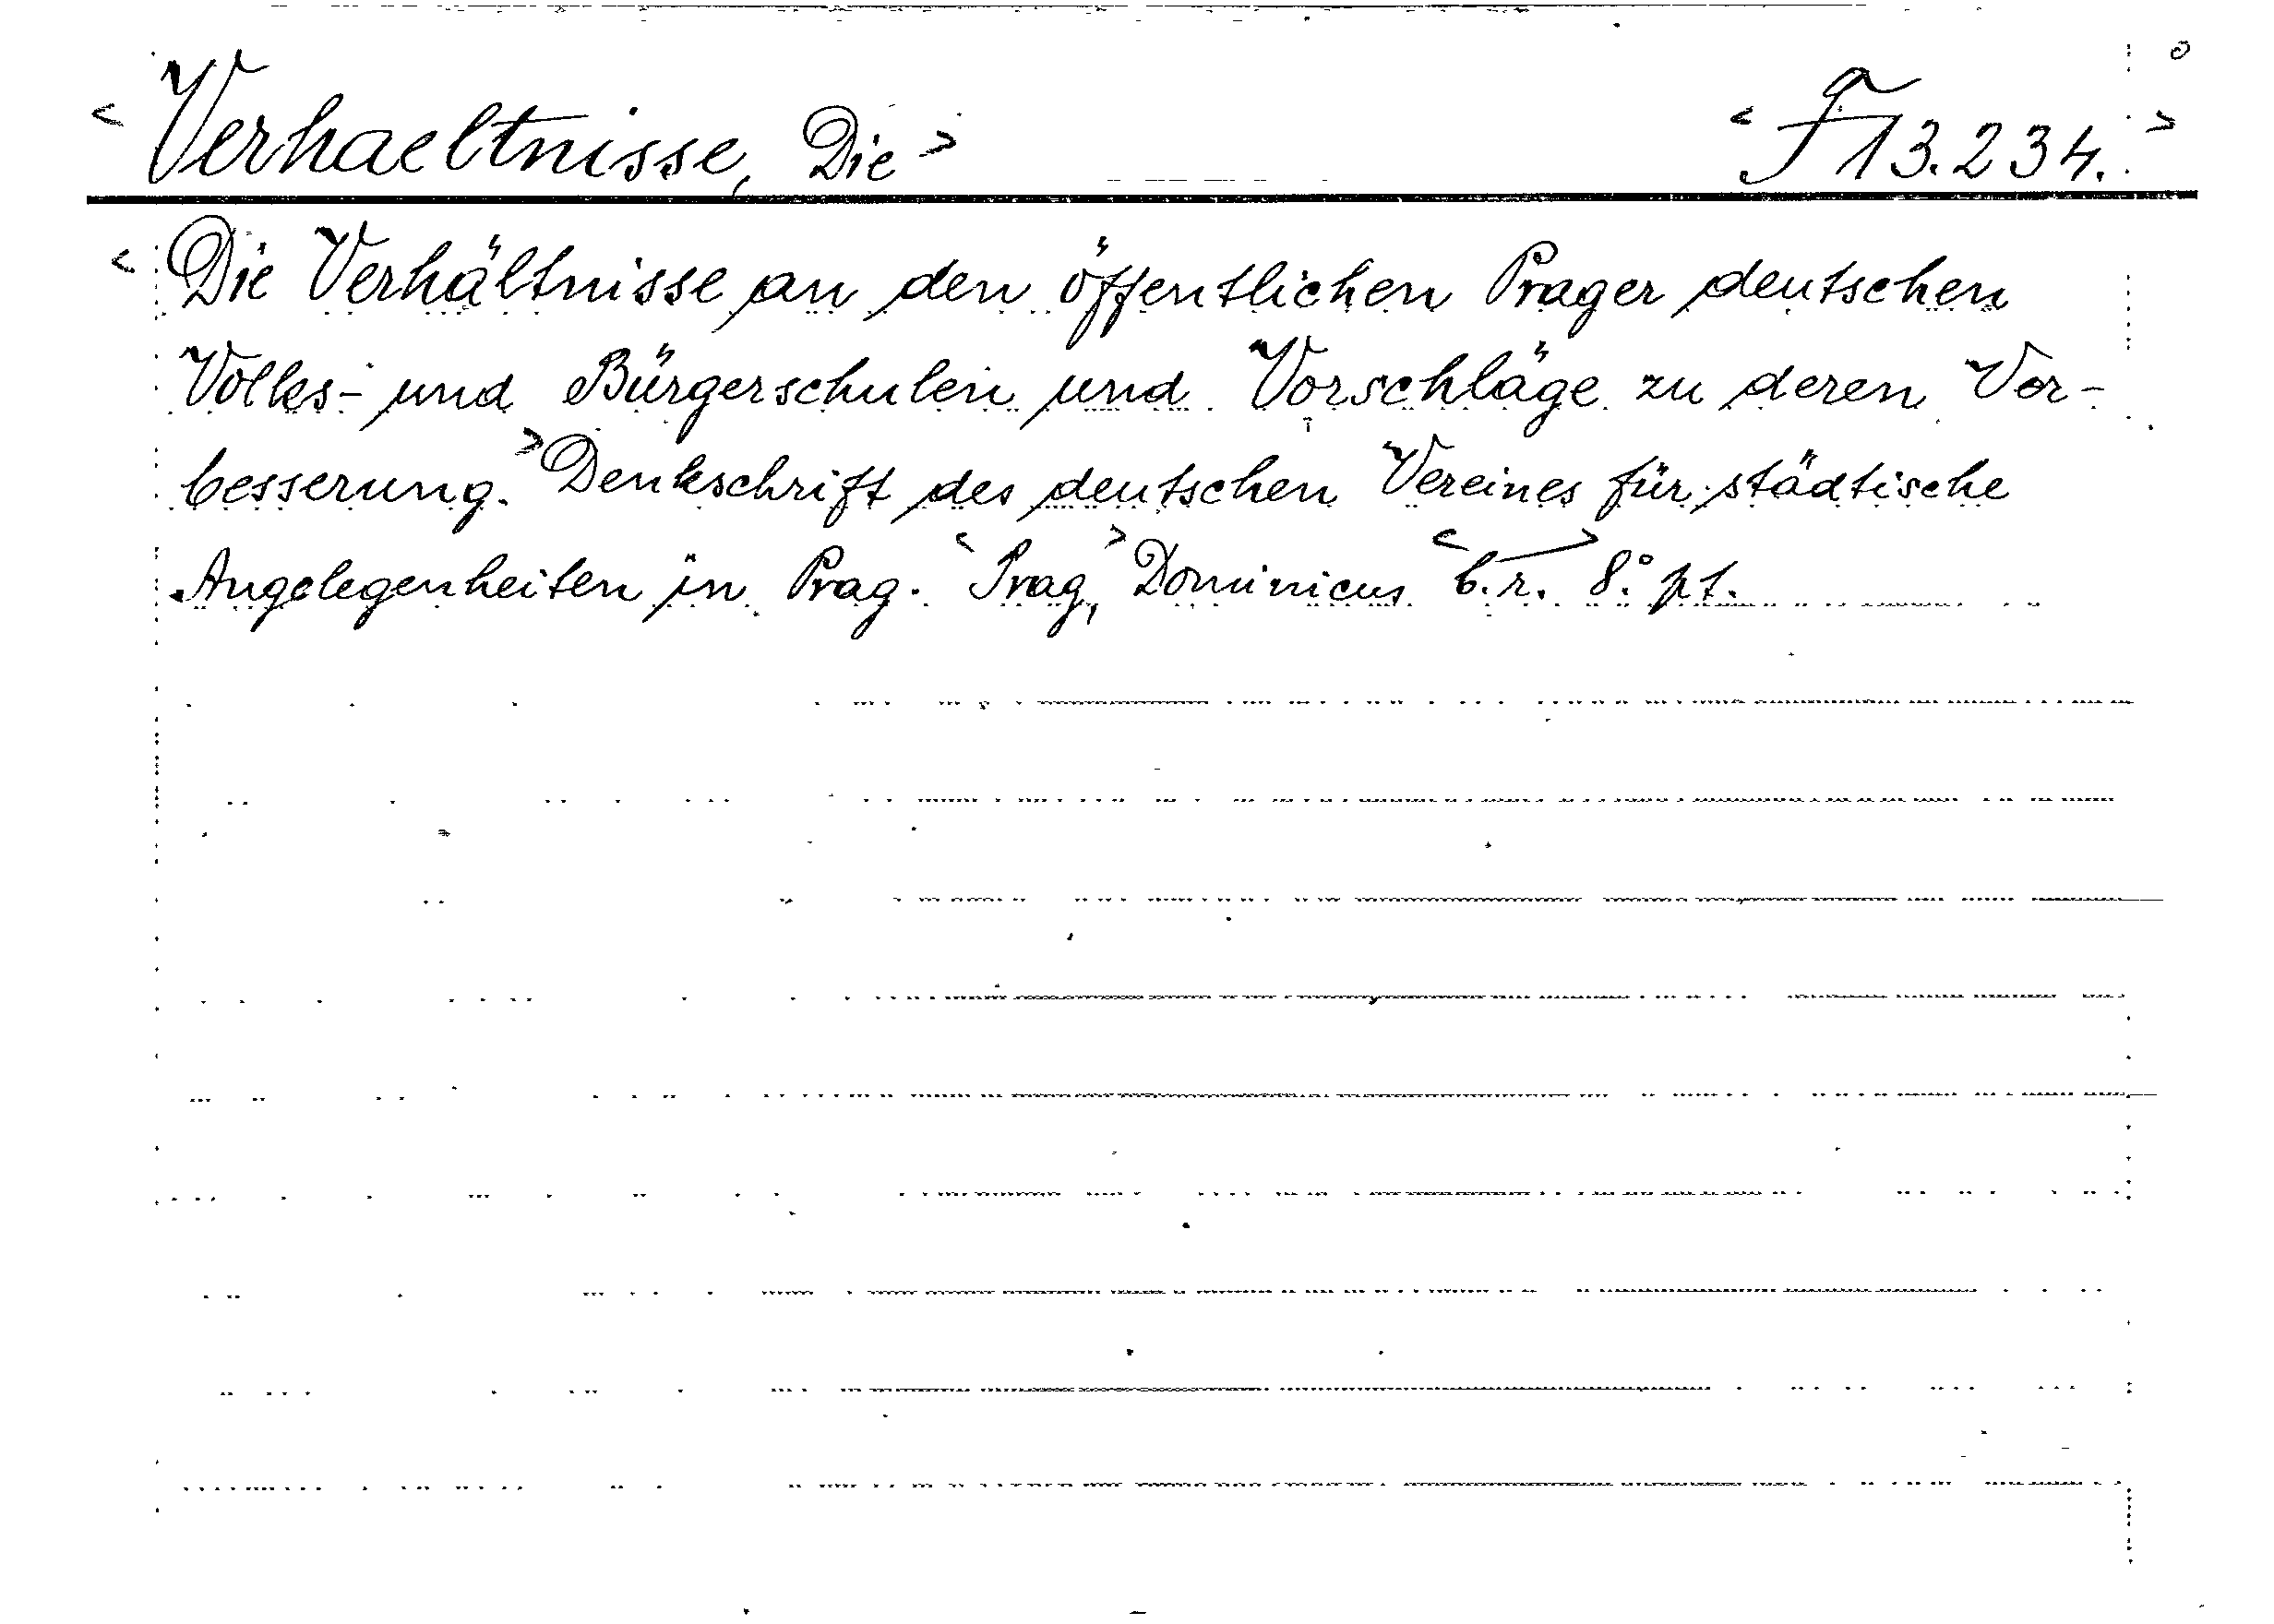 <Verhaeltnisse, Die> <F 13.234.>
<Die Verhältnisse an den öffentlichen Prager deutschen
Volks- und Bürgerschulen und Vorschläge zu deren Ver-
besserung.> Denkschrift des deutschen Vereines für städtische
Angelegenheiten in Prag. <Prag,> Dominicus <b.r.> 8.° pt.